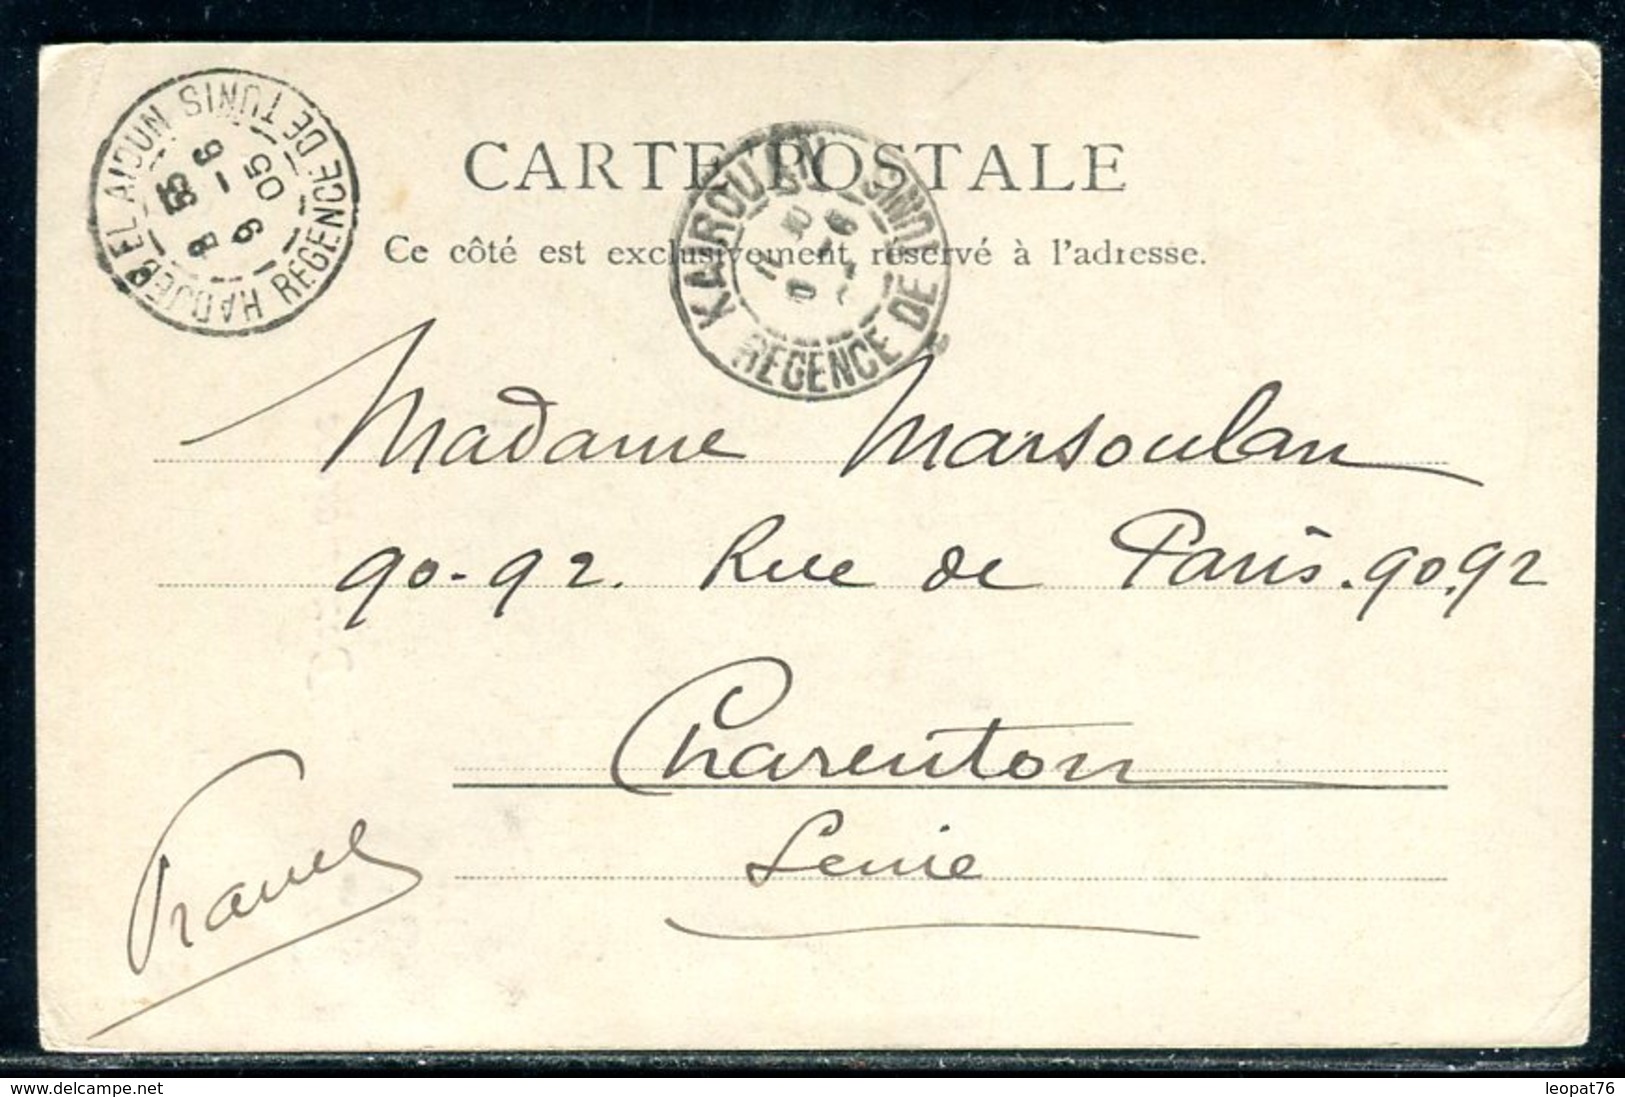 CARTE POSTALE
Ce côté est exclusivement réservé à l'adresse.
HADJEB EL AIOUN
RÉGENCE DE TUNIS
9 - 6
05
KAIROUAN
REGENCE DE TUNIS
Madame Marsoulan
90-92. Rue de Paris. 90.92
Charenton
Seine
France
www.delcampe.net
leopat76